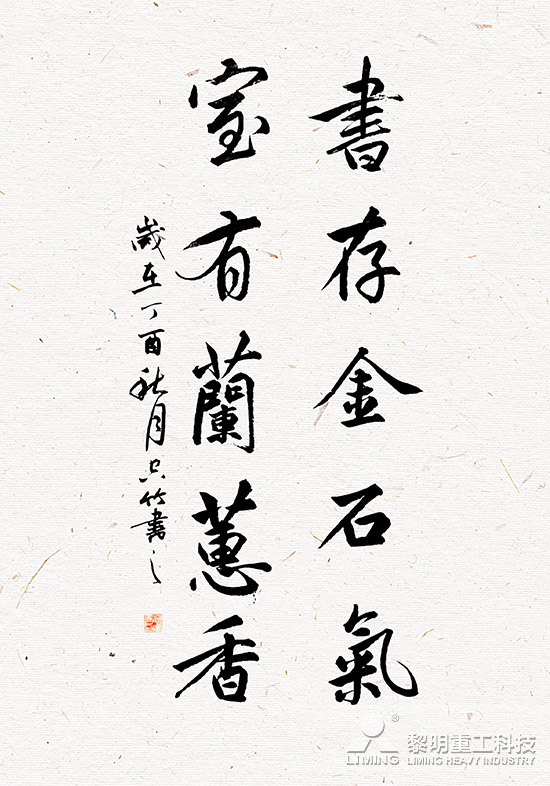 書存金石氣
室有蘭蕙香
歲在丁酉秋月只竹書之
®
黎明重工科技
LIMING LIMING HEAVY INDUSTRY